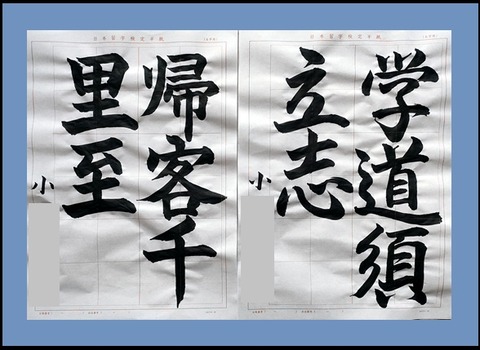 学道須
立志
小
帰客千
里至
小